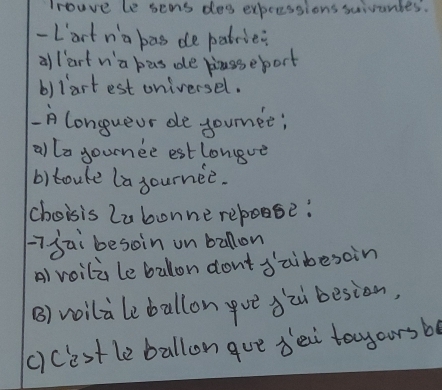 Trouve le sens des expressions suivantes.
- L'art n'a pas de patrie:
a) l'art n'a pas de passeport
b) l'art est universel.
- À longueur de journée:
a) la journée est longue
b) toute la journée.
choisis la bonne reponse:
→ j'ai besoin un ballon
A) voilà le ballon dont j'ai besoin
B) voilà le ballon que j'ai besion,
C) C'est le ballon que j'ai toujours be